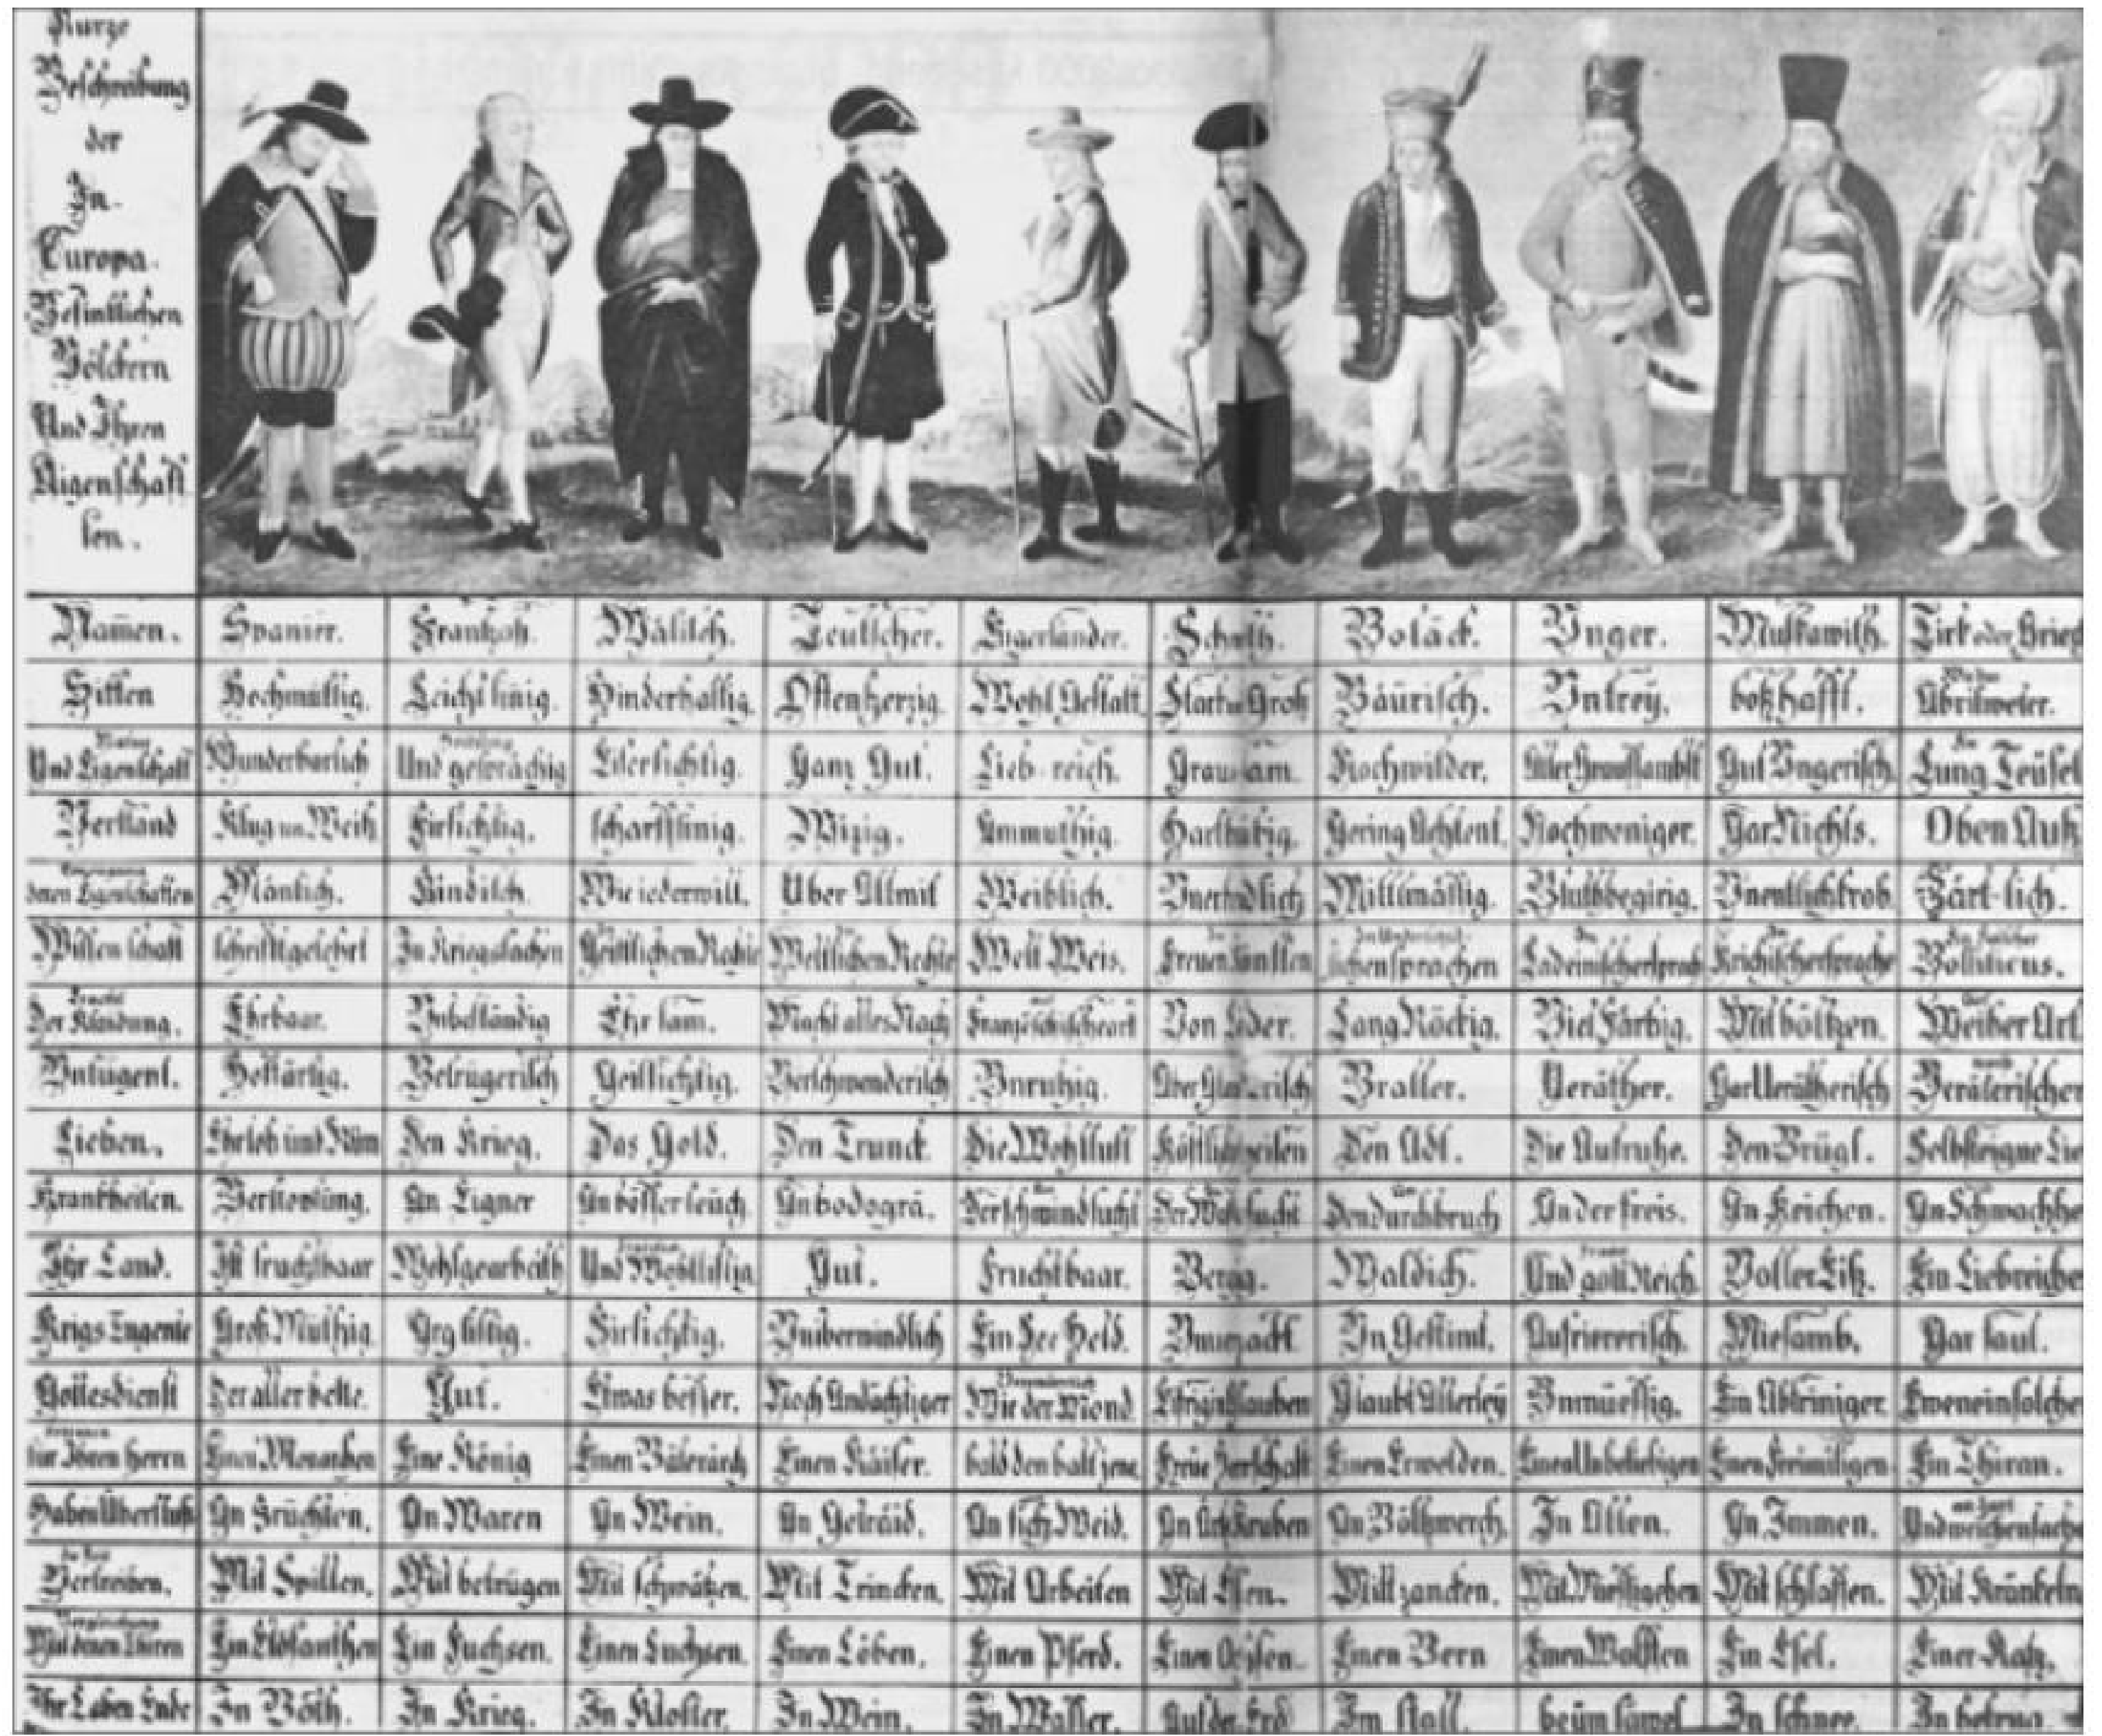 Kurze
Beschreibung
der
In
Europa
Befintlichen
Völckern
Und Ihren
Aigenschaff
ten.
Namen. Spanier. Frantzoß. Wälisch. Teutscher. Engerländer. Schwäth. Boläck. Vnger. Muskawith. Tirk oder Griech
Sitten Hochmüttig. Leicht sinig. Hinderhaltig. Offenherzig. Wohl Gestalt. Starck und Groß Bäurisch. Vntrey. boßhafft. Abrilweter.
Und Eigenschaft Wunderbarlich Und gesprächig Eifersichtig. Ganz Gut. Lieb-reich. Grausam. Nochwilder. Aller Graussambst Gut Vngerisch. Lung Teüfel
Verstand Klug un Weiß Firsichtig. scharffsinig. Wizig. Ammuthig. Hartnäkig. Gering Achtent. Nochweniger. Gar Nichts. Oben Auß
denen Eigenschaften Mänlich. Kindisch. Wie iederwill. Über Allmit Weiblich. Vnerkendlich Mittlmässig. Bluthbegirig. Vnentlichkrob. Zärt-lich.
Wissenschaft schriftgelehrt In Kriegssachen Geistlichem Rechte Weltlichen Rechte Welt Weis. Freuen Künsten Lateinischersprach Krichischersprache Bolliticus.
Der Kleidung. Ehrbaar. Vnbeständig Ehrsam. Macht alles Nach Französischeart Von Löder. Lang Röckig. Viel Färbig. Mit böltzen. Weiber Art.
Vntugent. Hoffärtig. Betrügerisch Geillichtig. Verschwenderisch Vnruhig. Aber Glauberisch Braller. Veräther. Gar Verätherisch Verätherischer
Lieben. Ehrlob und Rüm Den Krieg. Das Gold. Den Trunck. Die Wohllust Köstlichspeisen Den Adl. Die Aufruhe. Den Brügl. Selbsteigne Lie
Krankheiten. Verstopfung. An Eigner An bösser seüch. An bodogrä. Der schwindsucht Der Wassersucht Den durchbruch An der freis. An Keichen. An Schwachhe
Ihr Land. Ist fruchtbaar Wohlgearbeith Und Wohllistig. Gut. Fruchtbaar. Bergig. Waldich. Und gold Reich. Voller Eiß. Ein Liebreiche
Krigs Tugente Groß Müthig. Arg listig. Firsichtig. Vniberwindlich Ein See Held. Vnverzackt. Vn Gestimt. Aufriererisch. Miesamb. Gar faul.
Gottesdienst Der aller beste. Gut. Etwas besser. Noch Andächtiger Wie der Mond. Glaubt Allerley Vnmüessig. Ein Abtriniger. Eweneinsolche
für Ihren Herrn Einen Monarchen Eine König Einen Bäterärch Einen Käiser. bald den bald jene Freüe Herrschaft Einen Erwelden. Einen Unbeliebigen Einen Freimiligen Ein Thiran.
Haben Überfluß An Früchten. An Waren An Wein. An Geträid. An fich Weid. An Ärtz Kruben An Böltzwerch. In Allen. An Immen. Und weichensache
Vertreiben. Mit Spillen. Mit betrügen Mit schwätzen. Mit Trincken. Mit Arbeiten Mit Essen. Mitt zancken. Mit Müessiggehen Mit schlaffen. Mit Kränkeln
Mit denen Thieren Ein Elofanthen Ein Fuchsen. Einen Luchsen. Einen Löben. Einen Pferd. Einen Ochsen. Einen Bern Einen Wolffen Ein Esel. Einer Katz.
Ihr Leben Ende In Böth. In Krieg. In Kloster. In Wein. In Wasser. Auf der Erd Im stall. beüm säwel In schnee. In betrug.